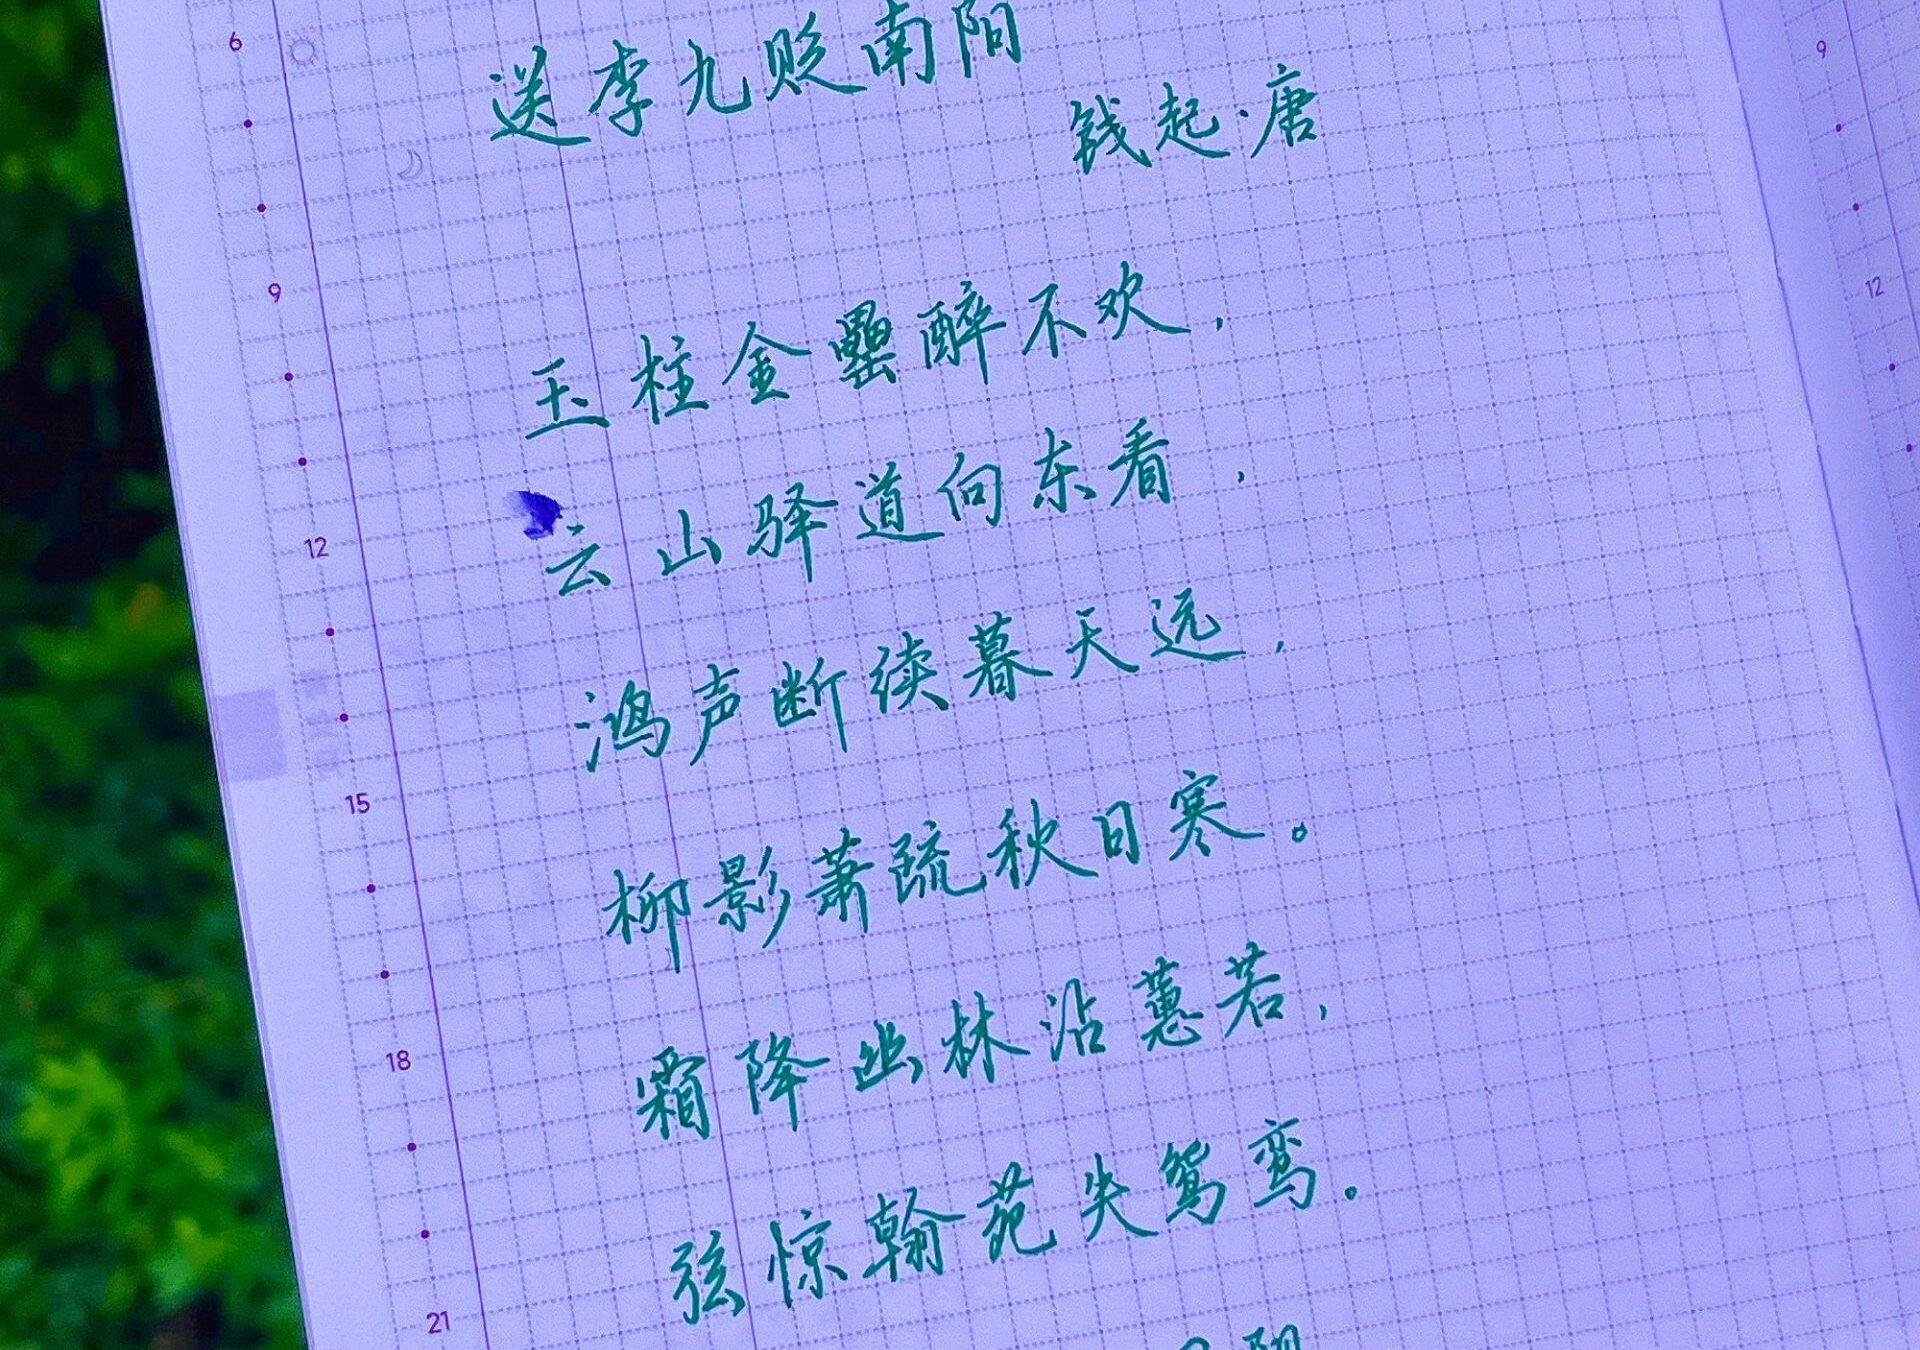 送李九贬南阳
钱起·唐
玉柱金罍醉不欢，
云山驿道向东看，
鸿声断续暮天远，
柳影萧疏秋日寒。
霜降幽林沾蕙若，
弦惊翰苑失鸳鸾。
阳
6
9
12
15
18
21
9
12